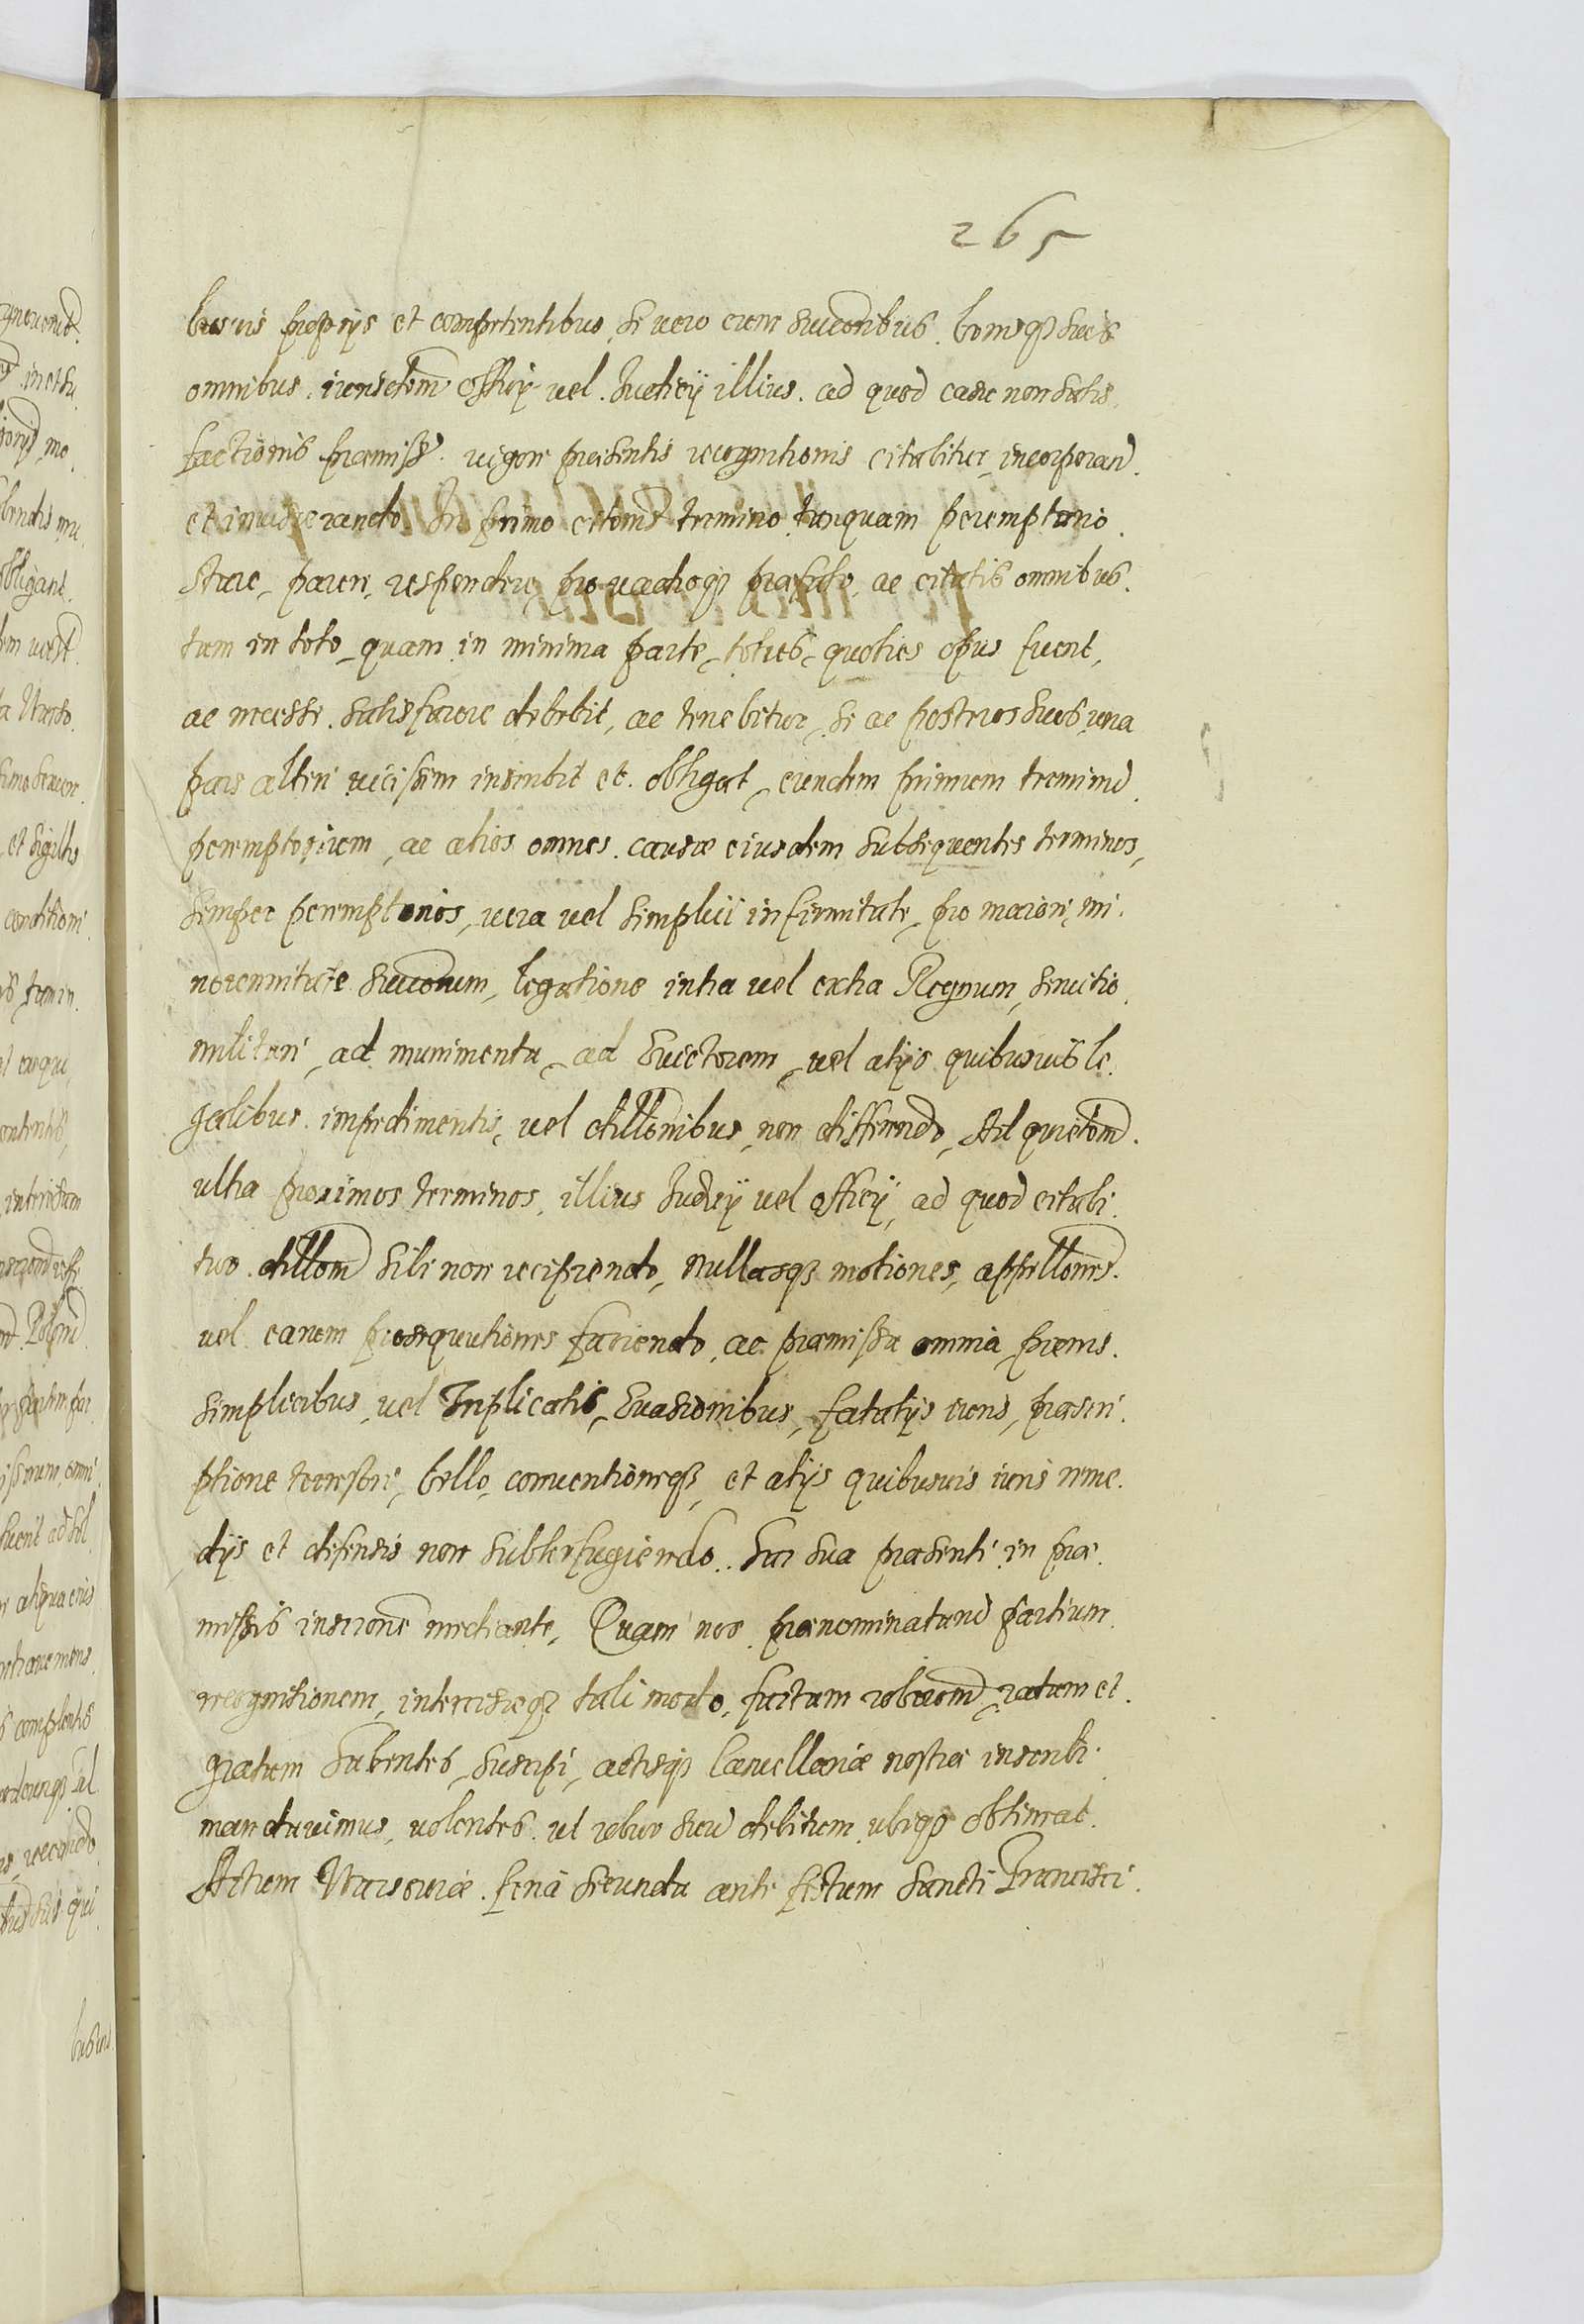 265
busvis proprijs et competentibus, se vero cum succoribus bonisq3 suis
omnibus iurisdictom officij vel Iudicij illius ad quod casu non satis
factionis praemissor vigore praesentis recognitionis citabitur, incorporand
et inviscerando. In primo citoms termino tanquam peremptorio
stare, parere, respondere, pro vadioq3 praefato, ac citatis omnibus
tam in toto, quam in minima parte, toties, quoties opus fuerit,
ac necesse satisfacere debebit, ac tenebitur, se ac posteros suos una
pars alteri vicissim inscribit et obligat, eundem primum terminu
peremptorium, ac alios omnes causae eiusdem subsequentes terminos,
semper peremptorios, vera vel simplici infirmitate, pro maiori, mi
norennitate succorum, legatione intra vel extra Regnum, servitio
militari, ad munimenta, ad Evictorem, vel alijs quibusvis le
galibus impedimentis, vel dillonibus, non differendo, Ad quietom
ultra proximos terminos, illius Iudicij vel officij, ad quod citabi
tur dillom sibi non recipiendo, Nullasq3 motiones, appellones
vel earum prosequutiones faciendo, ac praemissa omnia, praemis
simplicibus, vel Inplicatis, Evasionibus, fatalijs iuris, praescri
ptione terrestri, bello, conventioneq3, et alijs quibusvis iuris reme
dijs et defensis non subterfugiendo. Sua praesenti in prae
missis inscrione mediante, Quam nos praenominataru partium
recognitionem, intercisiaq3 tali modo factam roboroms, ratam et
gratam habentes, suscipi, actisq3 Cancellariae nostrae inscribi
mandavimus, volentes ut robur suu debitum ubiq3 obtineat.
Actum Warsoviae feria secunda ante festum Sancti Francisci.